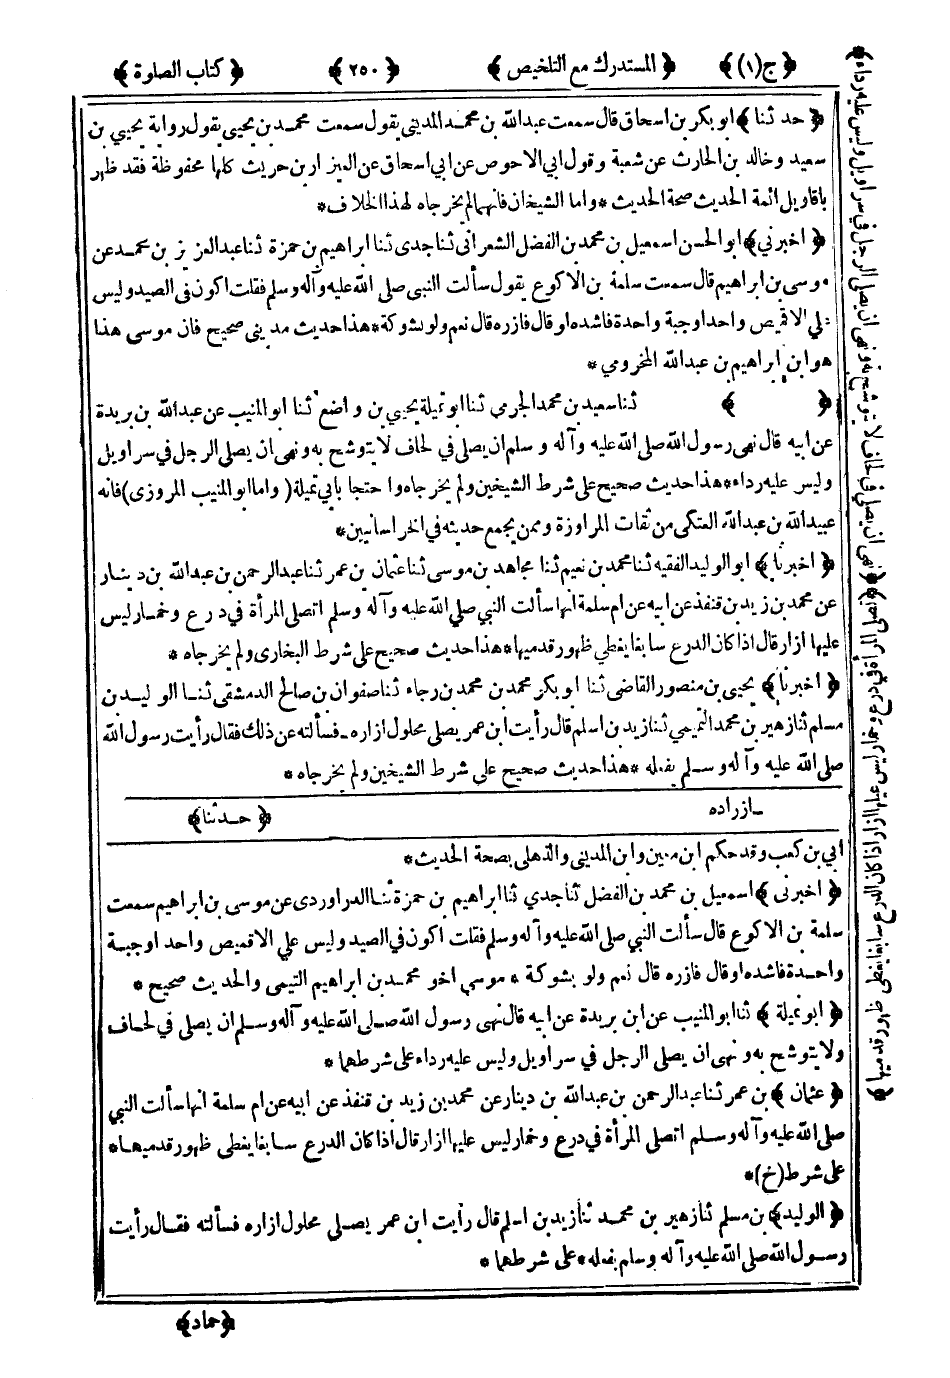 ﴿ ج (١) ﴾ ﴿ المستدرك مع التلخيص ﴾ ﴿ ٢٥٠ ﴾ ﴿ كتاب الصلوة ﴾
﴿ حدثنا ﴾ ابوبكر بن اسحاق قال سمعت عبدالله بن محمد المديني يقول سمعت محمد بن يحيى يقول رواية يحيى بن
سعيد وخالد بن الحارث عن شعبة وقول ابي الاحوص عن ابي اسحاق عن العيزار بن حريث كلها محفوظة فقد ظهر
باقاويل ائمة الحديث صحة الحديث * واما الشيخان فانهما لم يخرجاه لهذا الخلاف *
﴿ اخبرني ﴾ ابوالحسن اسمعيل بن محمد بن الفضل الشعراني ثنا جدى ثنا ابراهيم بن حمزة ثنا عبدالعزيز بن محمد عن
موسى بن ابراهيم قال سمعت سلمة بن الاكوع يقول سألت النبي صلى الله عليه وآله وسلم فقلت اكون في الصيد وليس
علي الا قميص واحد اوجبة واحدة فاشده او قال فازره قال نعم ولو بشوكة * هذا حديث مديني صحيح فان موسى هذا
هو ابن ابراهيم بن عبدالله المخزومي *
﴿ ﴾ ثنا سعيد بن محمد الجرمي ثنا ابوتميلة يحيى بن واضح ثنا ابوالمنيب عن عبدالله بن بريدة
عن ابيه قال نهى رسول الله صلى الله عليه وآله وسلم ان يصلى في لحاف لا يتوشح به ونهى ان يصلى الرجل في سراويل
وليس عليه رداء * هذا حديث صحيح على شرط الشيخين ولم يخرجاه وا حتجا بابي تميلة ( واما ابوالمنيب المروزى ) فانه
عبيدالله بن عبدالله العتكى من ثقات المراوزة وممن يجمع حديثه في الخراسانيين *
﴿ اخبرنا ﴾ ابوالوليد الفقيه ثنا محمد بن نعيم ثنا مجاهد بن موسى ثنا عثمان بن عمر ثنا عبدالرحمن بن عبدالله بن دينار
عن محمد بن زيد بن قنفذ عن ابيه عن ام سلمة انها سألت النبي صلى الله عليه وآله وسلم اتصلى المرأة في درع وخمار ليس
عليها ازار قال اذا كان الدرع سابغا يغطي ظهور قدميها * هذا حديث صحيح على شرط البخارى ولم يخرجاه *
﴿ اخبرنا ﴾ يحيى بن منصور القاضى ثنا ابوبكر محمد بن محمد بن رجاء ثنا صفوان بن صالح الدمشقى ثنا الوليد بن
مسلم ثنا زهير بن محمد التميمي ثنا زيد بن اسلم قال رأيت ابن عمر يصلى محلول ازاره ـ فسألته عن ذلك فقال رأيت رسول الله
صلى الله عليه وآله وسلم يفعله * هذا حديث صحيح على شرط الشيخين ولم يخرجاه *
ـ ازراده ﴿ حدثنا ﴾
ابي بن كعب وقد حكم ابن معين وابن المديني والذهلى بصحة الحديث *
﴿ اخبرنى ﴾ اسمعيل بن محمد بن الفضل ثنا جدي ثنا ابراهيم بن حمزة ثنا الدراوردى عن موسى بن ابراهيم سمعت
سلمة بن الاكوع قال سألت النبي صلى الله عليه وآله وسلم فقلت اكون في الصيد وليس علي الا قميص واحد اوجبة
واحدة فاشده او قال فازره قال نعم ولو بشوكة * موسى اخو محمد بن ابراهيم التيمى والحديث صحيح *
﴿ ابوتميلة ﴾ ثنا ابوالمنيب عن ابن بريدة عن ابيه قال نهى رسول الله صلى الله عليه وآله وسلم ان يصلى في لحاف
ولا يتوشح به ونهى ان يصلى الرجل في سراويل وليس عليه رداء على شرطهما *
﴿ عثمان ﴾ بن عمر ثنا عبدالرحمن بن عبدالله بن دينار عن محمد بن زيد بن قنفذ عن ابيه عن ام سلمة انها سألت النبي
صلى الله عليه وآله وسلم اتصلى المرأة في درع وخمار ليس عليها ازار قال اذا كان الدرع سابغا يغطى ظهور قدميها *
على شرط (خ) *
﴿ الوليد ﴾ بن مسلم ثنا زهير بن محمد ثنا زيد بن اسلم قال رأيت ابن عمر يصلى محلول ازاره فسألته فقال رأيت
رسول الله صلى الله عليه وآله وسلم يفعله * على شرطهما *
﴿ حماد ﴾
﴿ نهى ان يصلي في لحاف لا يتوشح به ونهى ان يصلى الرجل في سراويل وليس عليه رداء ﴾
﴿ المرأة في درع وخمار ليس عليها ازار اذا كان الدرع سابغا يغطى ظهور قدميها ﴾